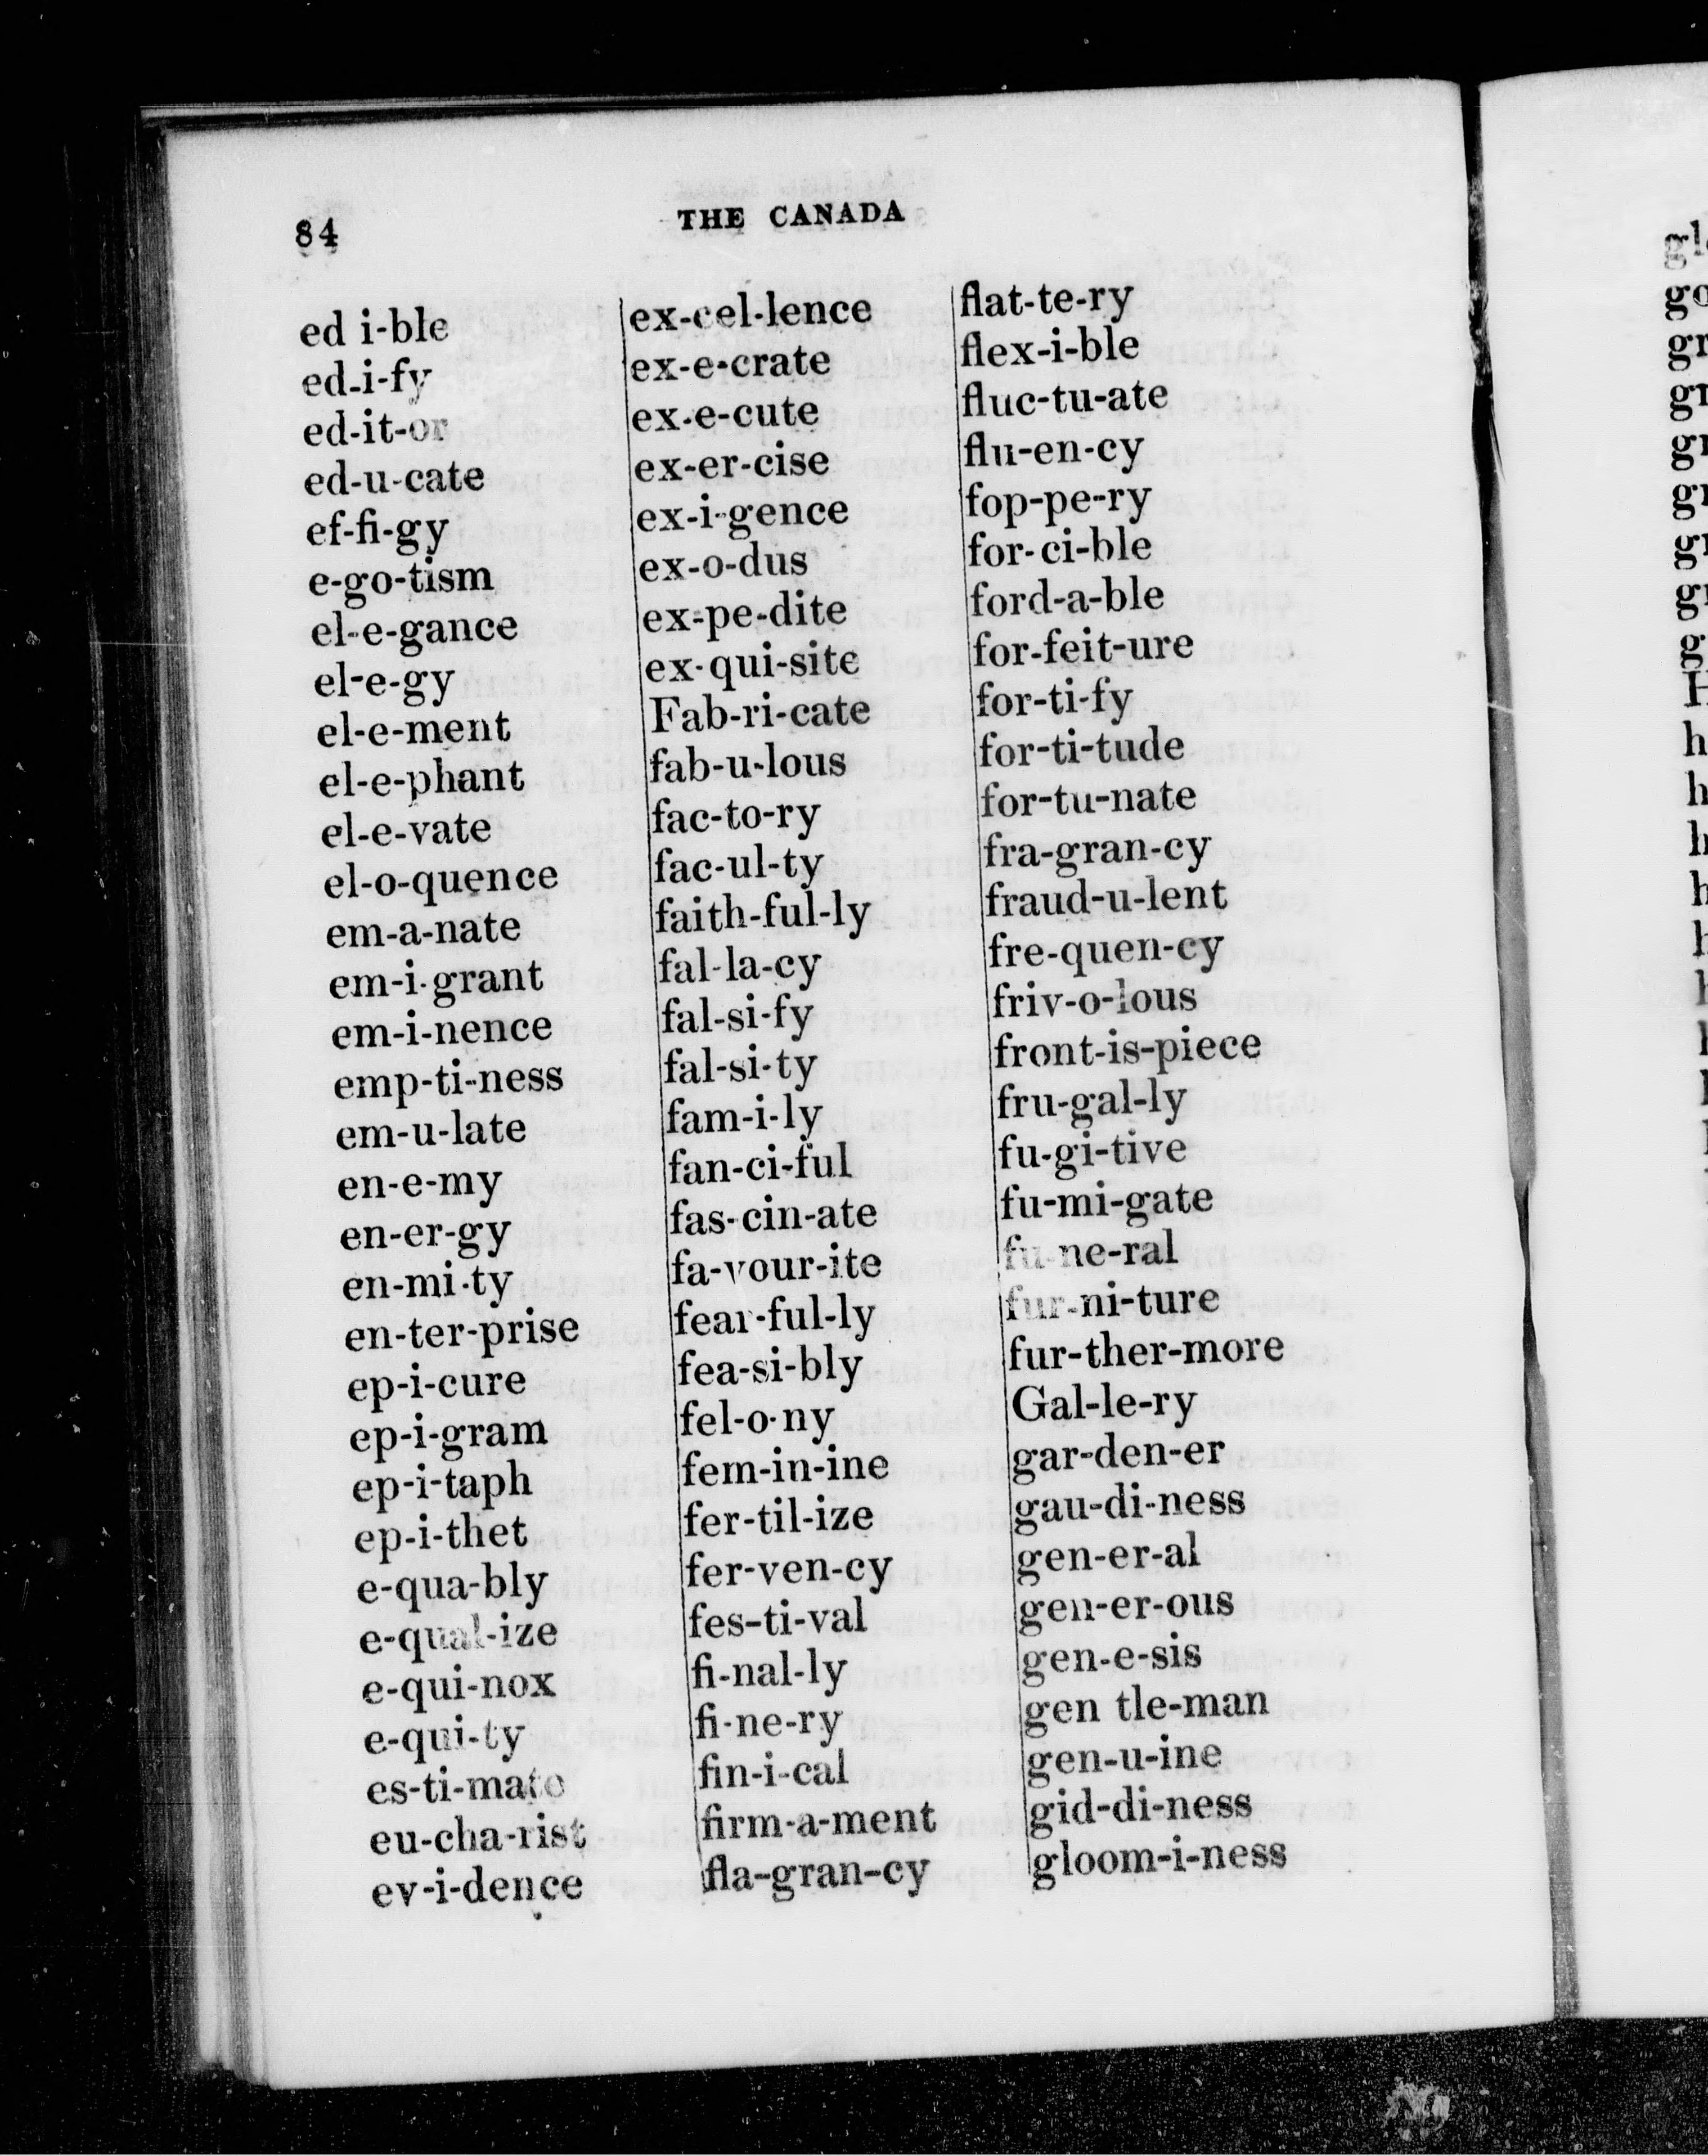 84
THE CANADA
ed i-ble
ed-i-fy
ed-it-or
ed-u-cate
ef-fi-gy
e-go-tism
el-e-gance
el-e-gy
el-e-ment
el-e-phant
el-e-vate
el-o-quence
em-a-nate
em-i-grant
em-i-nence
emp-ti-ness
em-u-late
en-e-my
en-er-gy
en-mi-ty
en-ter-prise
ep-i-cure
ep-i-gram
ep-i-taph
ep-i-thet
e-qua-bly
e-qual-ize
e-qui-nox
e-qui-ty
es-ti-mate
eu-cha-rist
ev-i-dence
ex-cel-lence
ex-e-crate
ex-e-cute
ex-er-cise
ex-i-gence
ex-o-dus
ex-pe-dite
ex-qui-site
Fab-ri-cate
fab-u-lous
fac-to-ry
fac-ul-ty
faith-ful-ly
fal-la-cy
fal-si-fy
fal-si-ty
fam-i-ly
fan-ci-ful
fas-cin-ate
fa-vour-ite
fear-ful-ly
fea-si-bly
fel-o-ny
fem-in-ine
fer-til-ize
fer-ven-cy
fes-ti-val
fi-nal-ly
fi-ne-ry
fin-i-cal
firm-a-ment
fla-gran-cy
flat-te-ry
flex-i-ble
fluc-tu-ate
flu-en-cy
fop-pe-ry
for-ci-ble
ford-a-ble
for-feit-ure
for-ti-fy
for-ti-tude
for-tu-nate
fra-gran-cy
fraud-u-lent
fre-quen-cy
friv-o-lous
front-is-piece
fru-gal-ly
fu-gi-tive
fu-mi-gate
fu-ne-ral
fur-ni-ture
fur-ther-more
Gal-le-ry
gar-den-er
gau-di-ness
gen-er-al
gen-er-ous
gen-e-sis
gen tle-man
gen-u-ine
gid-di-ness
gloom-i-ness